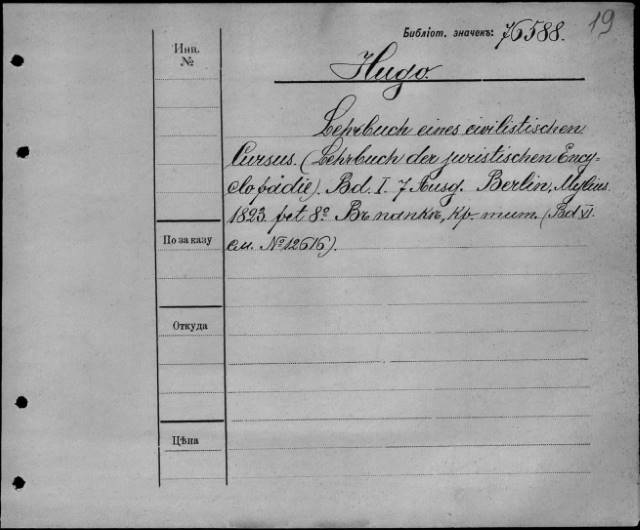 19
Библіот. значекъ: 76588.
Инв.
№
Hugo.
Lehrbuch eines civilistischen
Cursus. (Lehrbuch der juristischen Ency-
clopädie). Bd. I. 7 Ausg. Berlin, Mylius
1823 pet 8º. Въ папкѣ, кр.-тит. (Bd VI.
см. № 12616).
По заказу
Откуда
Цѣна